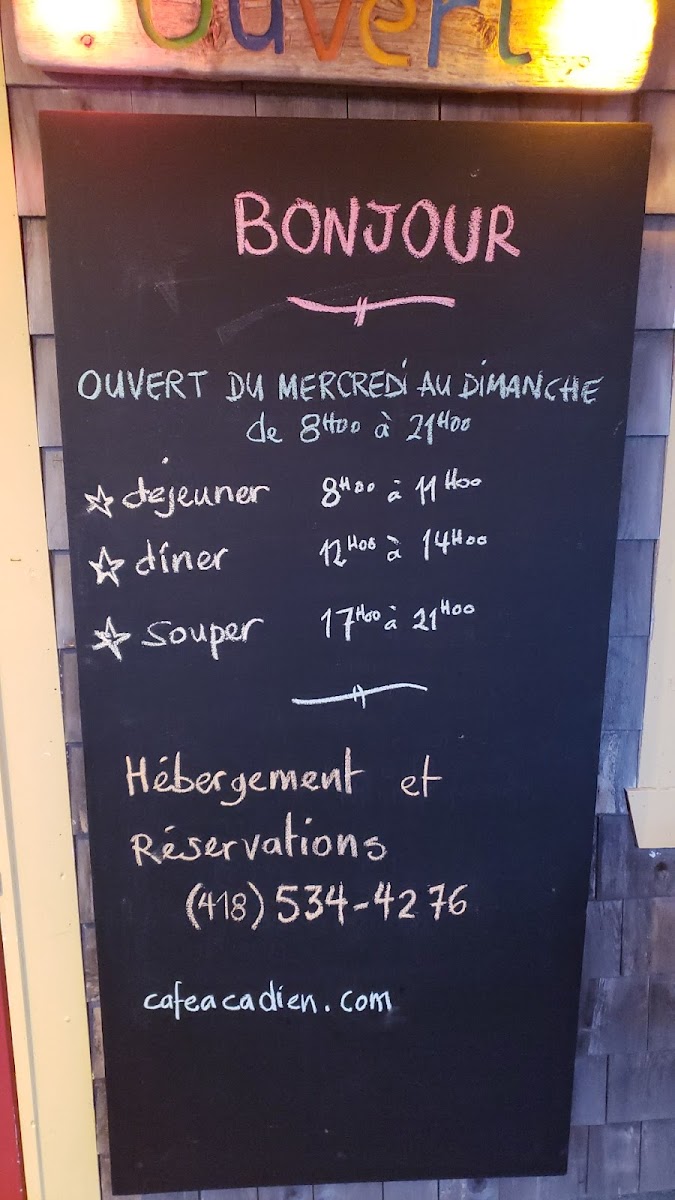 Ouvert
BONJOUR
OUVERT DU MERCREDI AU DIMANCHE
de 8H00 à 21H00
☆ déjeuner 8H00 à 11H00
☆ dîner 12H00 à 14H00
☆ souper 17H00 à 21H00
Hébergement et
Réservations
(418) 534-4276
cafeacadien.com